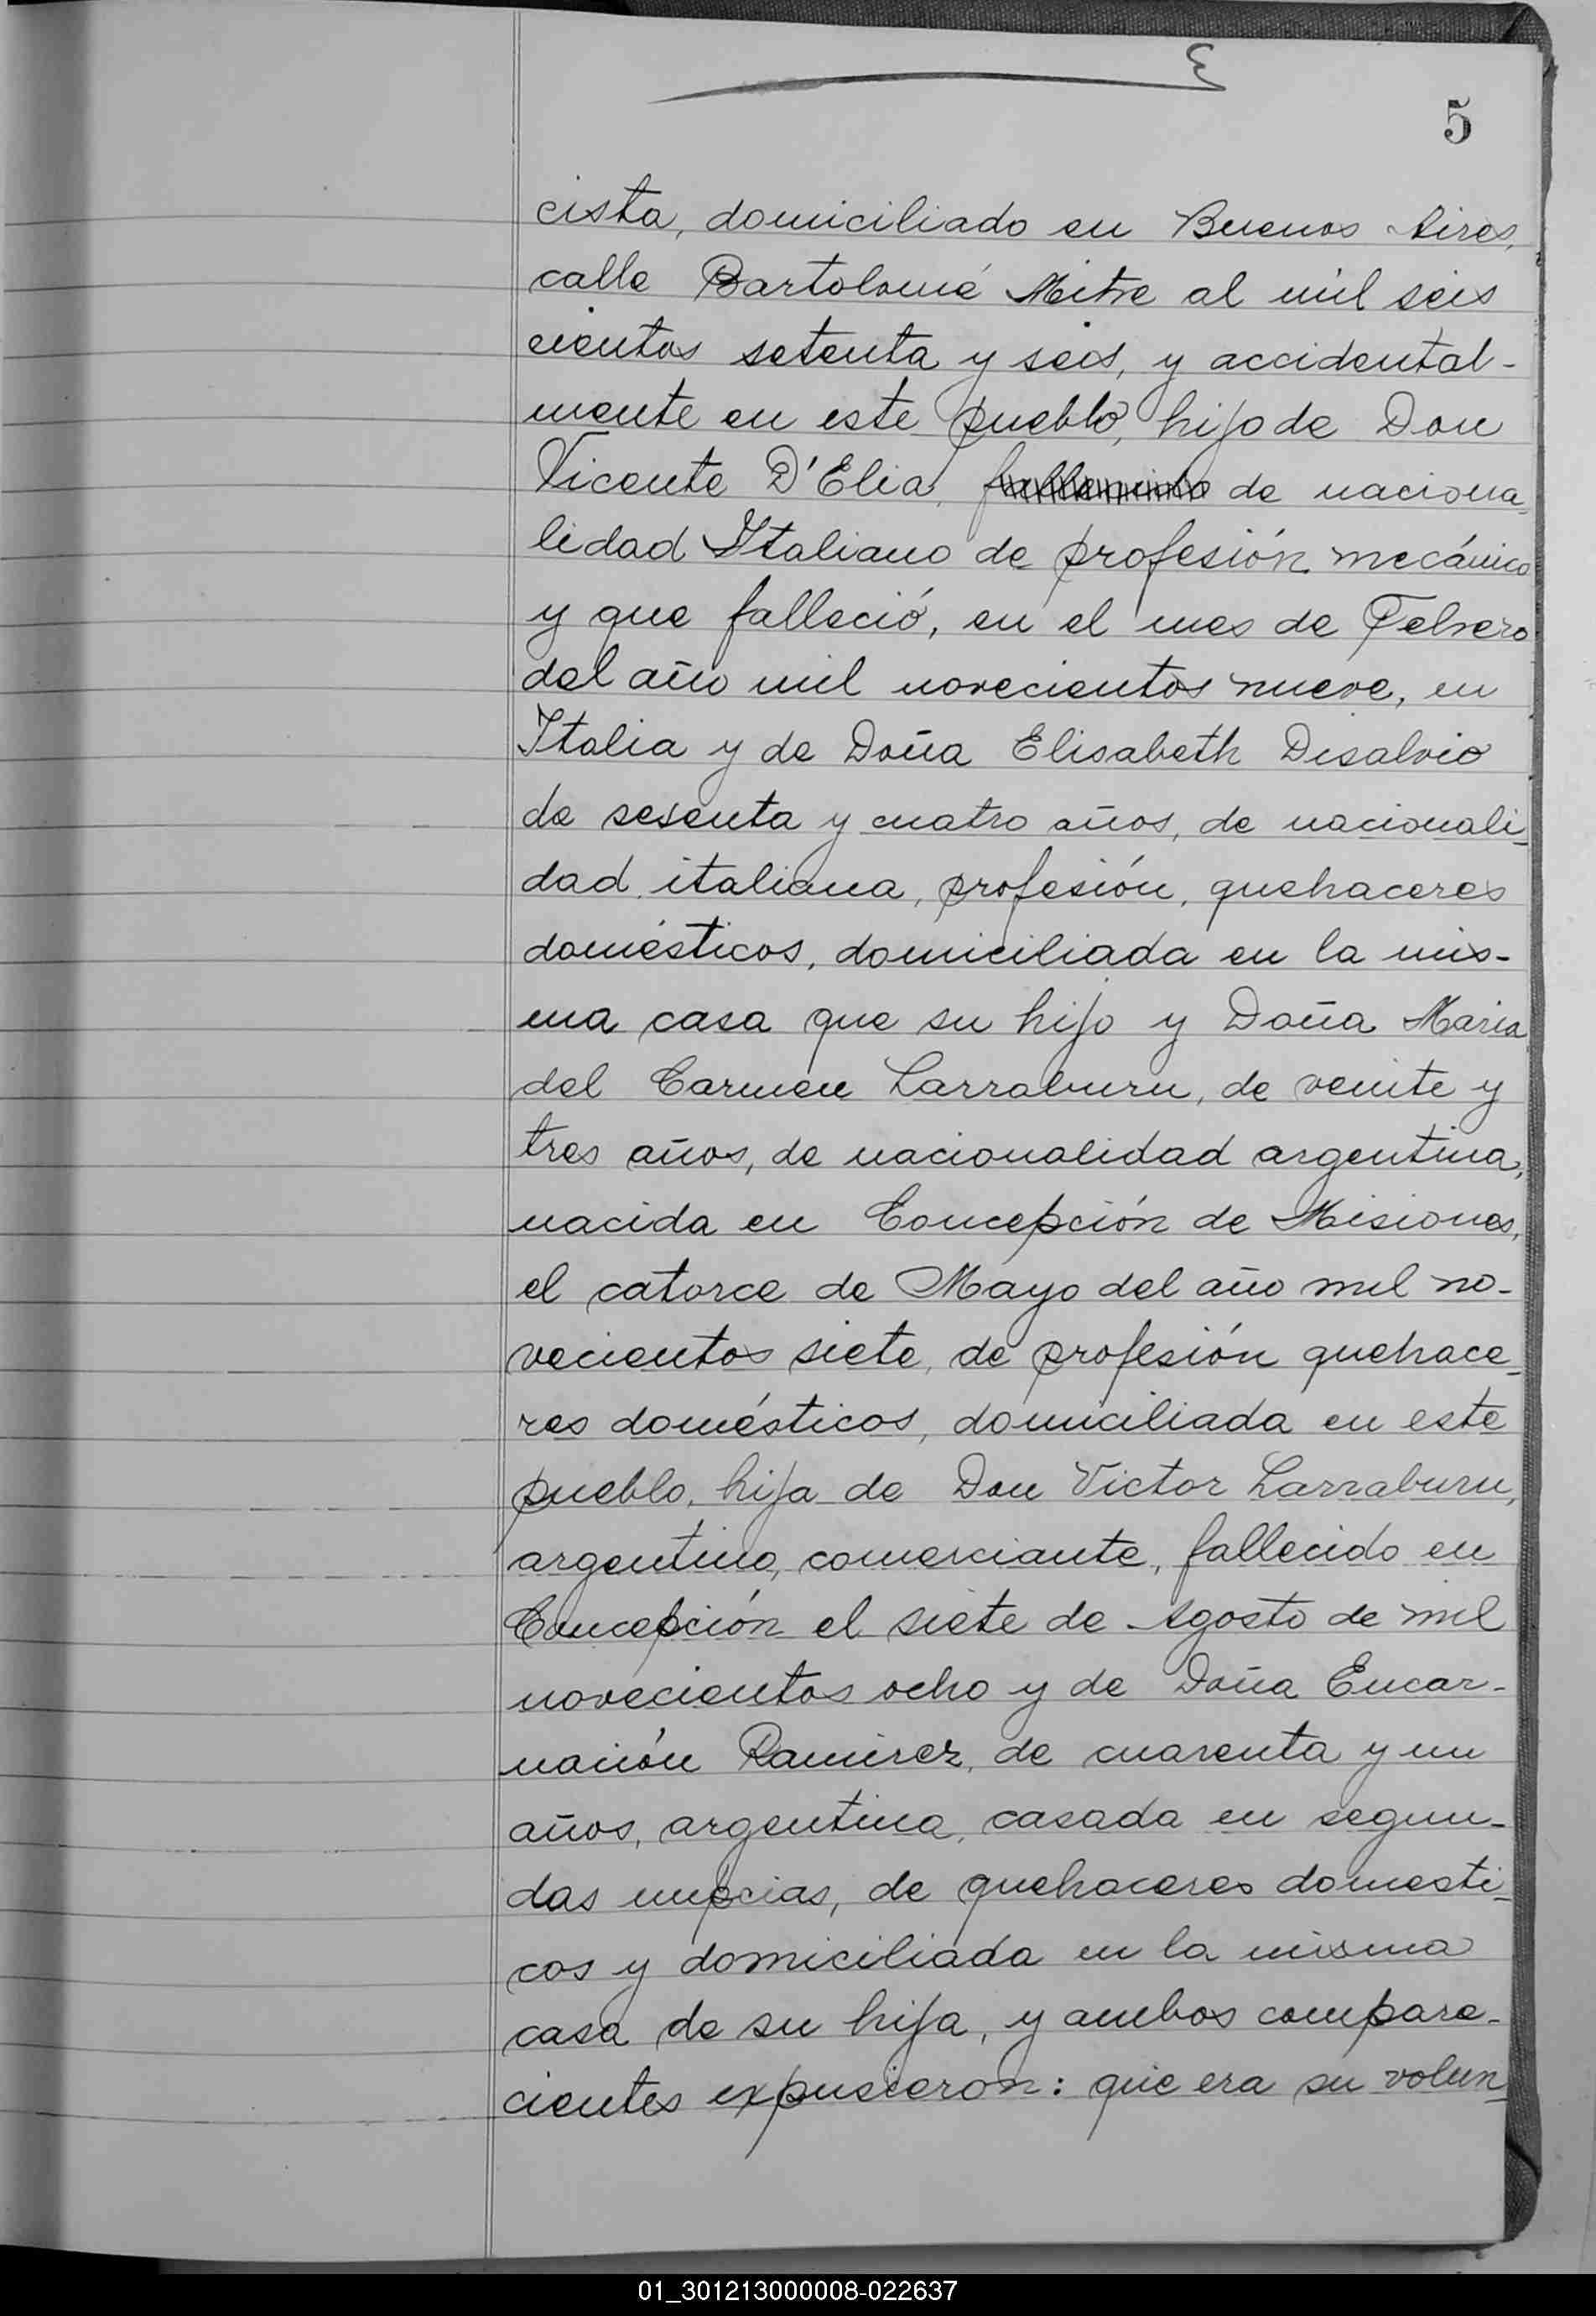 5
cista, domiciliado en Buenos Aires,
calle Bartolomé Mitre al mil seis
cientos setenta y seis, y accidental-
mente en este pueblo, hijo de Don
Vicente D'Elia, de naciona
lidad Italiano de profesión mecánico
y que falleció, en el mes de Febrero
del año mil novecientos nueve, en
Italia y de Doña Elisabeth Disalvio
de sesenta y cuatro años, de nacionali
dad italiana, profesión, quehaceres
domésticos, domiciliada en la mis-
ma casa que su hijo y Doña Maria
del Carmen Larraburu, de veinte y
tres años, de nacionalidad argentina,
nacida en Concepción de Misiones,
el catorce de Mayo del año mil no-
vecientos siete, de profesión quehace-
res domésticos, domiciliada en este
pueblo, hija de Don Victor Larraburu,
argentino, comerciante, fallecido en
Concepción el siete de Agosto de mil
novecientos ocho y de Doña Encar-
nación Ramirez, de cuarenta y un
años, argentina, casada en segun-
das nupcias, de quehaceres domesti-
cos y domiciliada en la misma
casa de su hija, y ambos compare-
cientes expusieron: que era su volun-
01_301213000008-022637